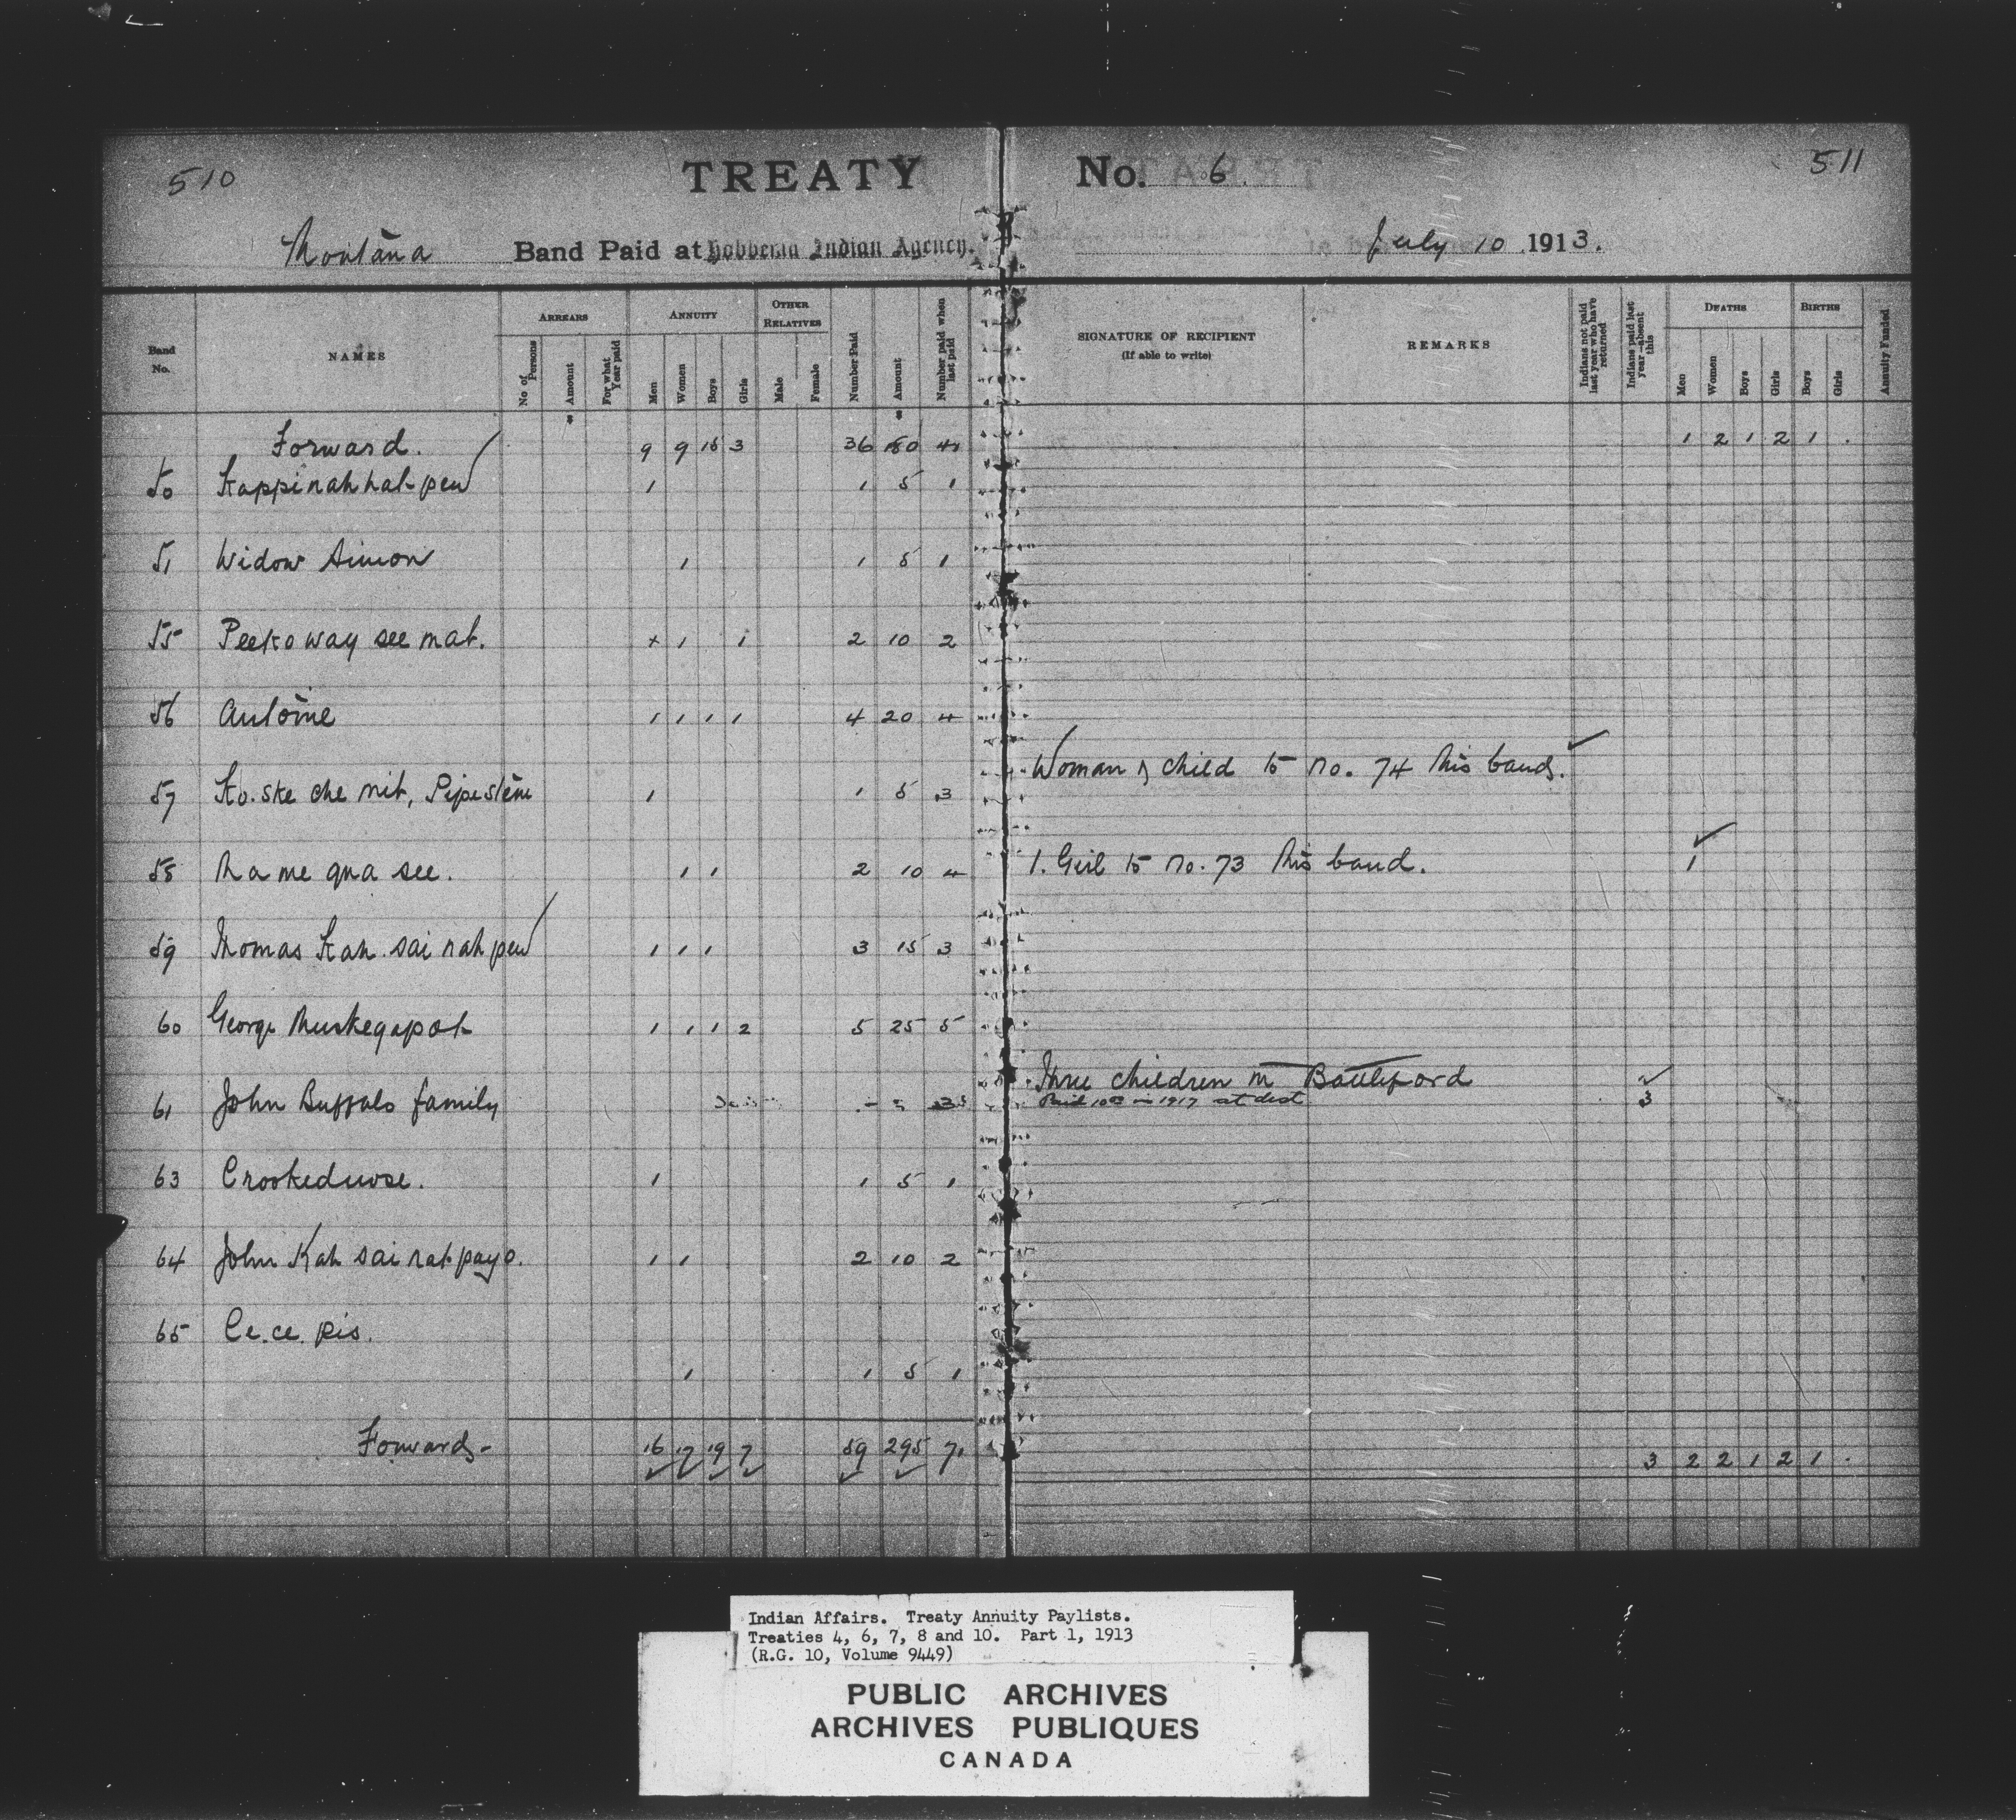 510
TREATY No. 6.
511
Montana Band Paid at Hobbema Indian Agency. July 10 1913.
Band No. NAMES ARREARS No. of Persons Amount For what Year paid ANNUITY Men Women Boys Girls OTHER RELATIVES Male Female Number Paid Amount Number paid when last paid SIGNATURE OF RECIPIENT (If able to write) REMARKS Indians not paid last year who have returned Indians paid last year—absent this DEATHS Men Women Boys Girls BIRTHS Boys Girls Annuity Funded
Forward. 9 9 15 3 36 180 41 1 2 1 2 1 .
50 Kappinahhat pew 1 1 5 1
51 Widow Simon 1 1 5 1
55 Peeko way see mat. x 1 1 2 10 2
56 Antoine 1 1 1 1 4 20 4
57 Ko. ske che nit, Pipestem 1 1 5 3 Woman & child to no. 74 this band.
58 Na me qua see. 1 1 2 10 4 1. Girl to no. 73 this band. 1
59 Thomas Kah. sai nah pew 1 1 1 3 15 3
60 George Muskegapot 1 1 1 2 5 25 5
61 John Buffalo family 3 Three children in Battleford
Paid in 1917 at dest 3
63 Crookednose. 1 1 5 1
64 John Kah sai nat payo. 1 1 2 10 2
65 Ce. ce. pis.
1 1 5 1
Forwards - 16 17 19 7 59 295 71 3 2 2 1 2 1 .
Indian Affairs. Treaty Annuity Paylists.
Treaties 4, 6, 7, 8 and 10. Part 1, 1913
(R.G. 10, Volume 9449)
PUBLIC ARCHIVES
ARCHIVES PUBLIQUES
CANADA